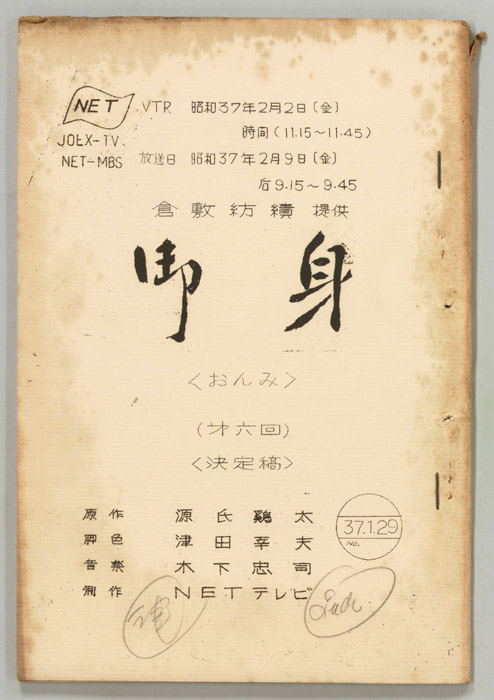 NET
JOEX-TV.
NET-MBS
VTR 昭和37年2月2日〔金〕
時間(11.15~11.45)
放送日 昭和37年2月9日〔金〕
后9.15~9.45
倉敷紡績 提供
御身
<おんみ>
(才六回)
<決定稿>
原作 源氏鶏太
脚色 津田幸夫
音楽 木下忠司
制作 NETテレビ
37.1.29
NO.